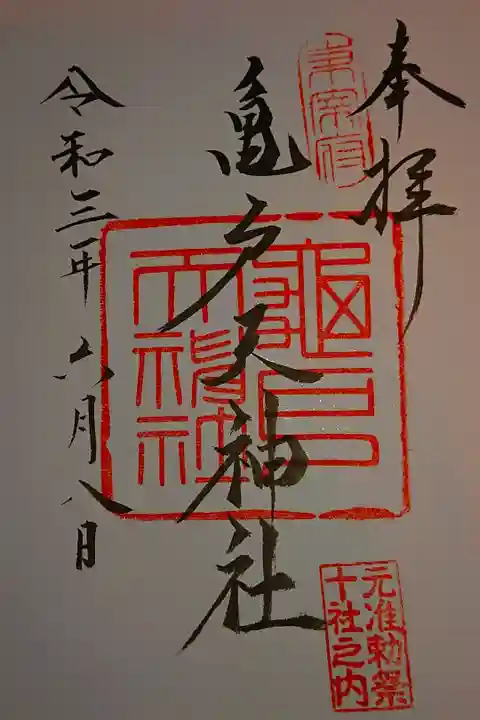 奉拝
東宰府
亀戸天神社
龜戸
天神社
令和三年六月八日
元准勅祭
十社之内